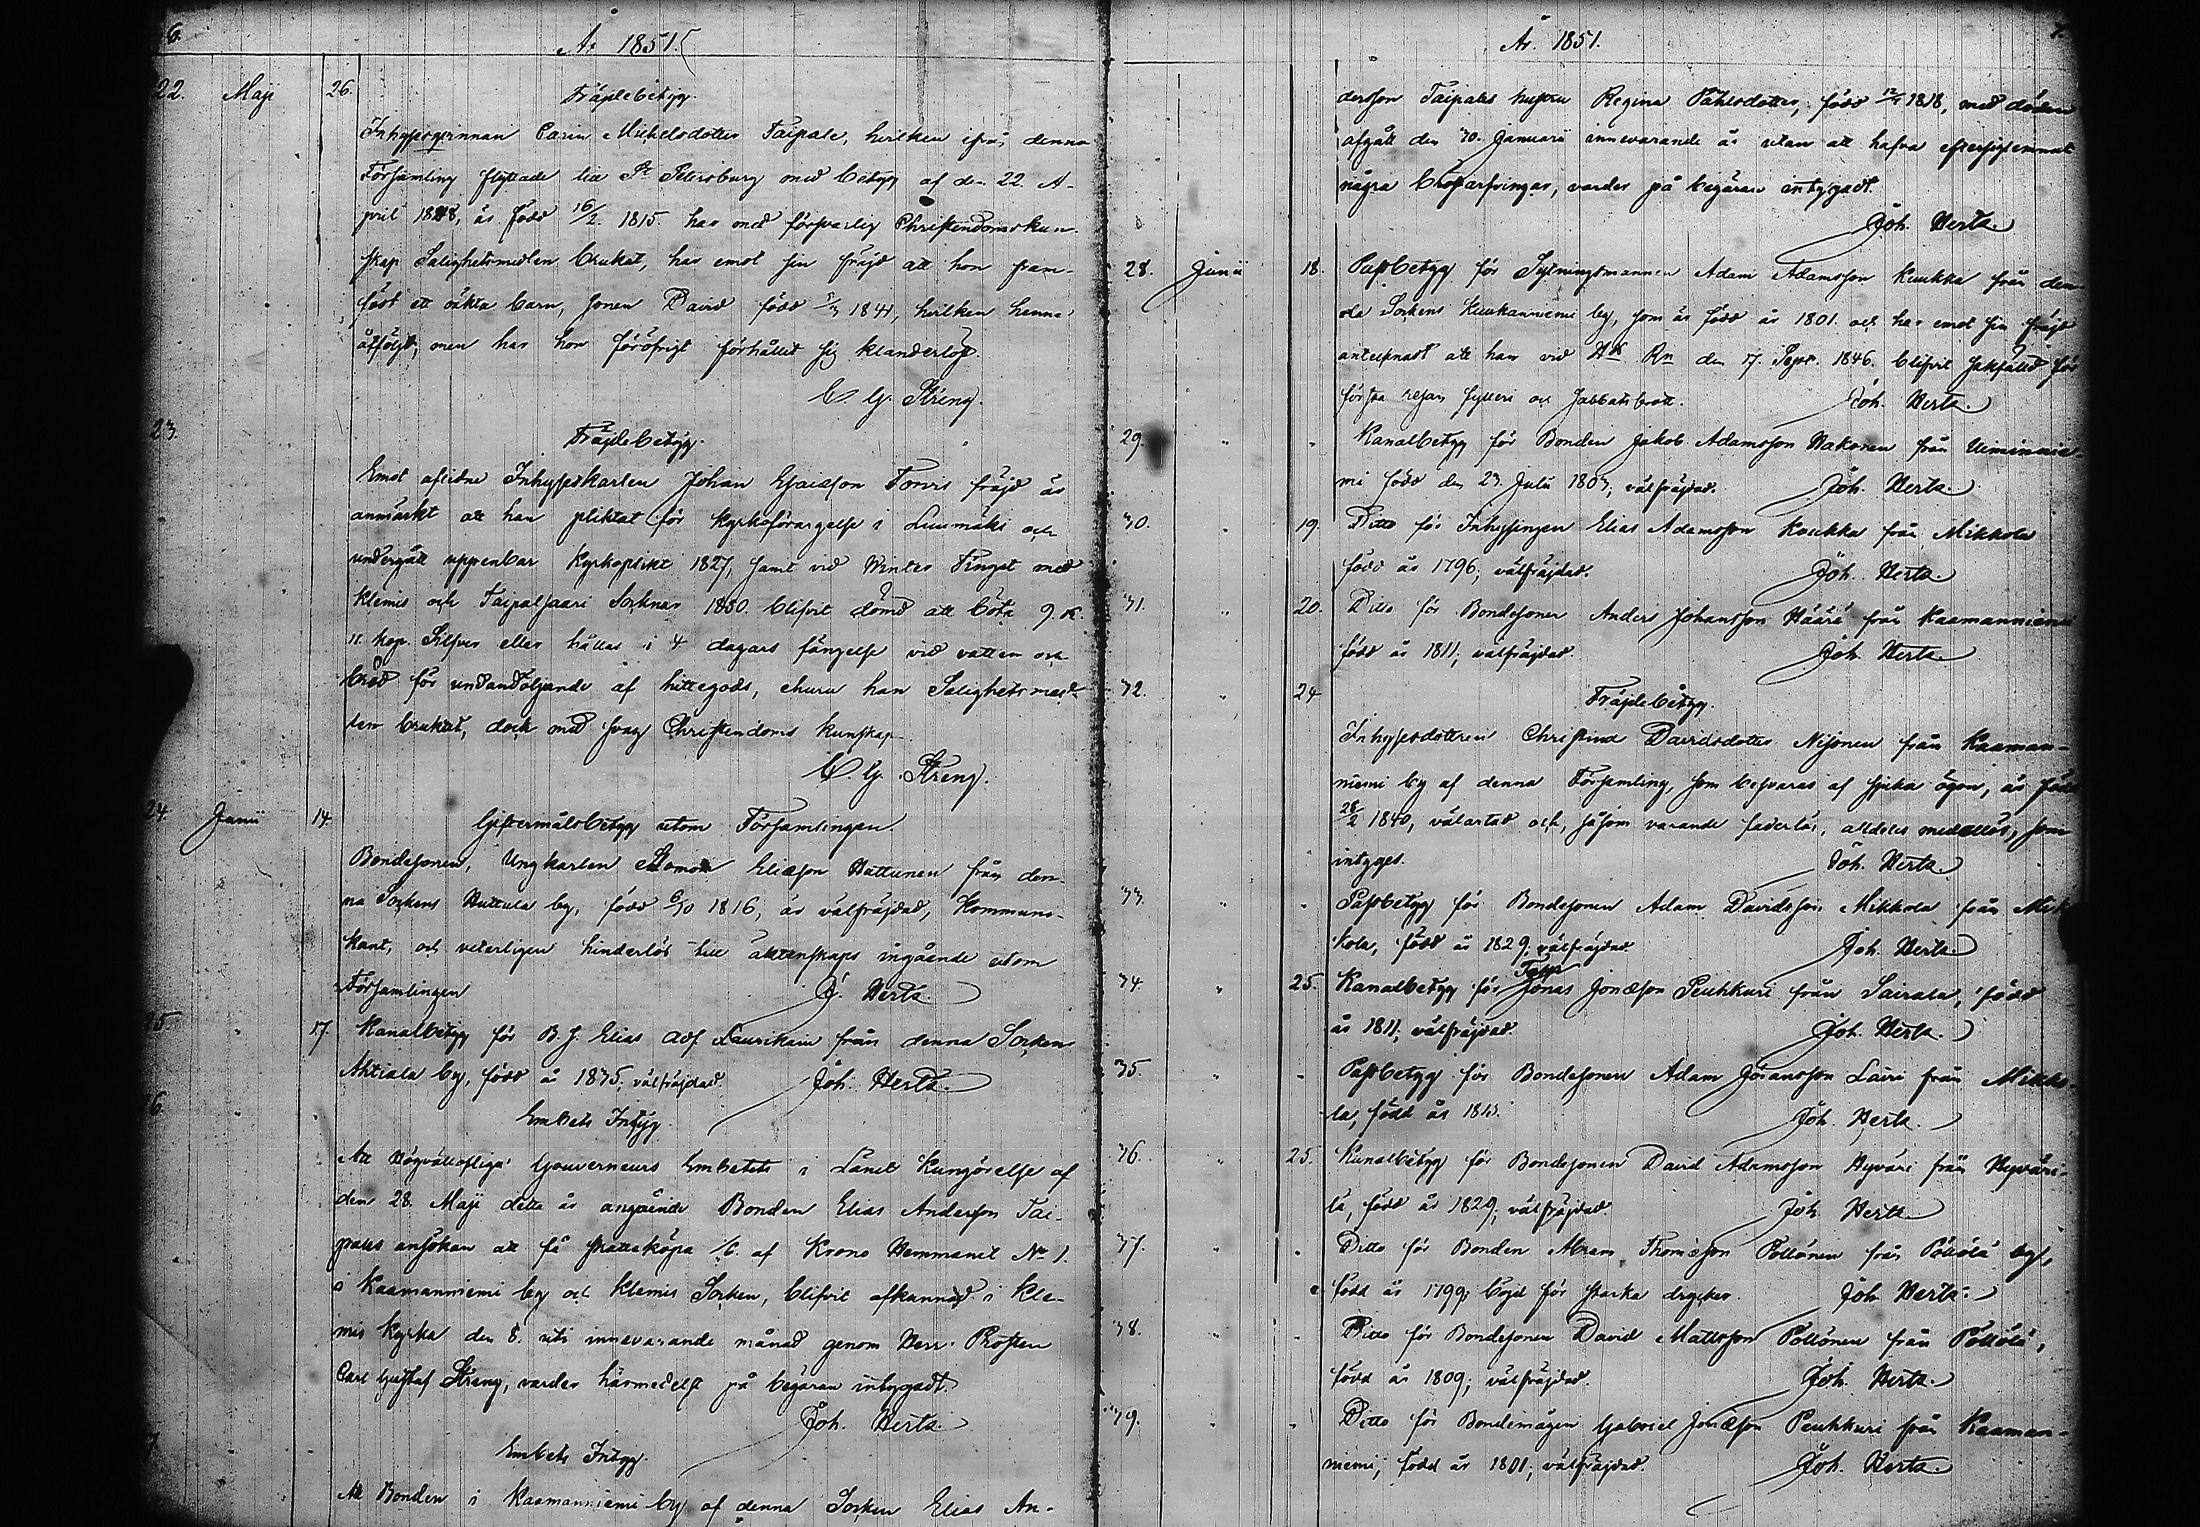 6.
År 1851.
22. Maji 26.
Fräjdebetyg
Inhysesqvinnan Carin Michelsdotter Taipale, hvilken ifrån denna
Församling flyttade till St Petersburg med betyg af d. 22. A-
pril 1848, är född 16/2 1815. har med försvarlig Christendomskun-
skap Salighetsmedlen brukat, har emot sin fräjd att hon fram-
födt ett oäkta barn, sonen David född 1844, hvilken henne
åtföljt, men har hon föröfrigt förhållit sig klanderlöst.
C. G. Streng.
23.
Fräjdebetyg.
Emot aflidne Inhyseskarlen Johan Esaiasson Tomis fräjd är
anmärkt att han pliktat för kyrkoförargelse i Luumäki och
undergått uppenbar Kyrkoplikt 1827, samt vid Winter Tinget med
Klemis och Taipalsaari Socknar 1850. blifvit dömd att böta 9. R.
11. kop. Silfver eller hållas i 4 dagars fängelse vid vatten och
bröd för undandöljande af hittegods, ehuru han Salighetsmed-
len brukat, dock med svag Christendoms kunskap
C. G. Streng.
24. Junii 14.
Giftermålsbetyg utom Församlingen.
Bondesonen, Ungkarlen Simon Eliasson Hattunen från den-
na Sockens Huttula by, född 6/10 1816, är välfräjdad, kommuni-
kant, och veterligen hinderlös till äktenskaps ingående utom
Församlingen J. Herts.
25 " 17. Kanalbetyg för B. S. Elias Adf Laurikain från denna Socken
Ahtiala by, född år 1835; välfräjdad. Joh. Herts.
26. "
Embets Intyg.
Att Högvällofliga Gouverneurs Embetets i Länet Kungörelse af
den 28. Maji detta år angående Bonden Elias Andersson Tai-
pales ansökan att få skatteköpa 1/6. af Krono Hemmanet No 1.
i Kaamanniemi by och Klemis Socken, blifvit afkunnad i Kle-
mis kyrka den 8. uti innevarande månad genom Herr Prosten
Carl Gustaf Streng, varder härmedelst på begäran intygadt.
Joh. Herts.
7
Embets Intyg.
Att Bonden i Kaamanniemi by af denna Socken Elias An-
År. 1851.
7.
dersson Taipales hustru Regina Påhlsdotter, född 1818, med döden
afgått den 30. Januarii innevarande år utan att hafva efterlemnat
några bröstarfvingar, varder på begäran intygadt.
Joh. Herts.
28. Junii 18. Passbetyg för Sytningsmannen Adam Adamsson Kuukka från den-
na Sockens Kuukanniemi by, som är född år 1801. och har emot sin fräjd
antecknadt att han vid Rn den 17. Sept. 1846. blifvit sakfälld för
första resan fylleri och sabbatsbrott. Joh. Herts.
29. " " Kanalbetyg för Bonden Jakob Adamsson Hakonen från Uiminnie-
mi född den 23. Julii 1803; välfräjdad. Joh. Herts.
30. " 19. Ditto för Inhysingen Elias Adamsson Koukka från Mikkola
född år 1796; välfräjdad. Joh. Herts.
31. " 20. Ditto för Bondesonen Anders Johansson Hääri från Kaamanniemi
född år 1811; välfräjdad. Joh. Herts.
32. " 24
Fräjdebetyg.
Inhysesdottren Christina Davidsdotter Nisonen från Kaaman-
niemi by af denna Församling, som besvaras af sjuka ögon, är född
28/2 1840, välartad och, såsom varande faderlös, alldeles medellös, som
intyges. Joh. Herts.
33. " " Passbetyg för Bondesonen Adam Davidsson Mikkola från Mik-
kola, född år 1829; välfräjdad. Joh. Herts.
34 " 25. Kanalbetyg för Jonas Jonasson Peuhkuri från Sairala, född
år 1811; välfräjdad. Joh. Herts.
35. " " Passbetyg för Bondesonen Adam Göransson Lairi från Mikko-
la, född år Joh. Herts.
36. " 25. Kanalbetyg för Bondesonen David Adamsson Hyväri från Hyväri-
lä, född år 1829; välfräjdad. Joh. Herts.
37. " " Ditto för Bonden Abram Thomasson Pöllönen från Pöllölä by,
född år 1799; böjd för starka drycker. Joh. Herts.
38. " " Ditto för Bondesonen David Mattsson Pöllönen från Pöllölä,
född år 1809; välfräjdad. Joh. Herts.
39. " " Ditto för Bondemågen Gabriel Jonasson Peuhkuri från Kaaman-
niemi, född år 1801; välfräjdad. Joh. Herts.